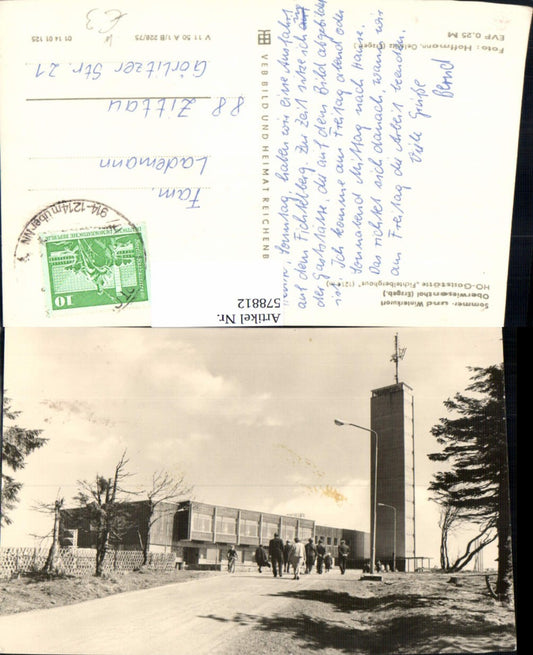 Sommer- und Winterkurort
Oberwiesenthal (Erzgeb.)
HO-Gaststätte "Fichtelberghaus" (1214 m)
Sonntag, haben wir eine Ausfahrt
auf dem Fichtelberg. Zur Zeit sitze ich
der Gaststätte, die auf dem Bild abgebildet
ist. Ich komme am Freitag abend oder
Sonnabend Mittag nach Hause.
Das richtet sich danach, wann wir
am Freitag die Arbeit beenden.
Viele Grüße
Bernd
Foto: Hoffmann, Oelsnitz (Erzgeb.)
EVP 0,25 M
VEB BILD UND HEIMAT REICHENB
V 11 50 A 1/B 228/75
01 14 01 125
€3
10
DEUTSCHE DEMOKRATISCHE REPUBLIK
914-1214m über NN
Fam.
Lademann
88 Zittau
Görlitzer Str. 21
Artikel Nr.
578812